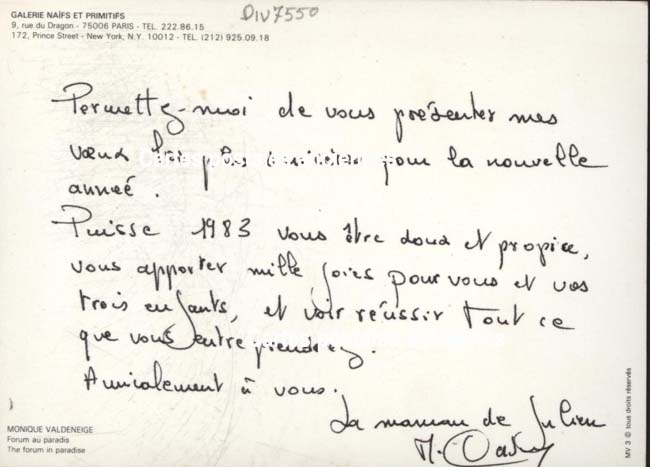 GALERIE NAÏFS ET PRIMITIFS
9, rue du Dragon - 75006 PARIS - TEL. 222.86.15
172, Prince Street - New York, N.Y. 10012 - TEL. (212) 925.09.18
DIV7550
Permettez-moi de vous présenter mes
vœux les plus pour la nouvelle
année.
Puisse 1983 vous être doux et propice,
vous apporter mille joies pour vous et vos
trois enfants, et voir réussir tout ce
que vous entreprendrez.
Amicalement à vous.
La maman de Julien
M.
MONIQUE VALDENEIGE
Forum au paradis
The forum in paradise
MV 3 © tous droits réservés